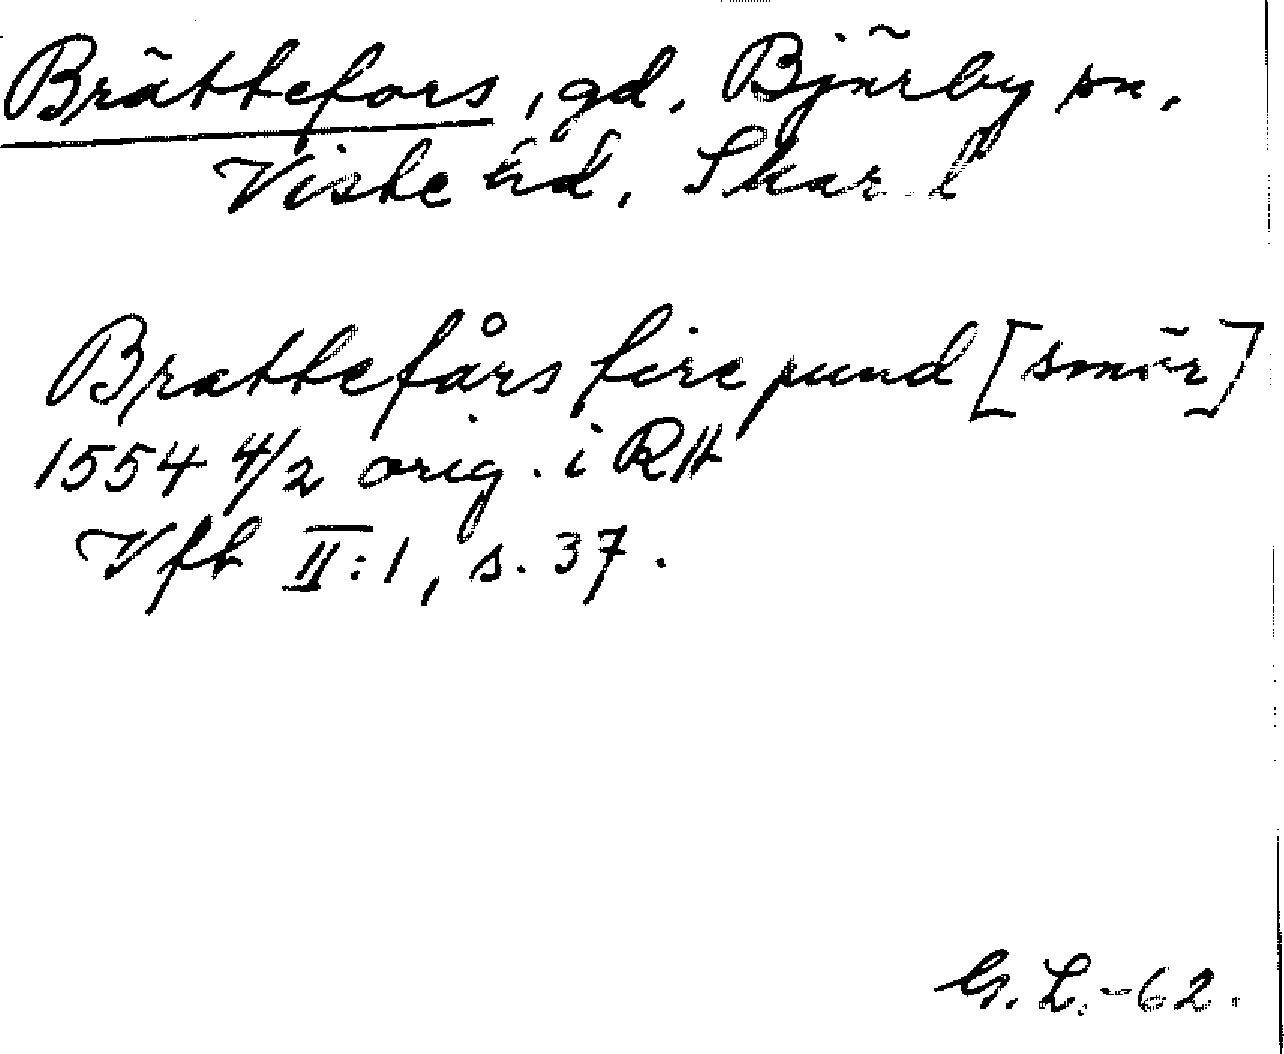 Brättefors, gd. Bjärby sn.
Viste hd. Skar. l
Brattefårs fire pund [smör]
1554 4/2 orig. i RH
Vft II:1, s. 37.
G. L.-62.